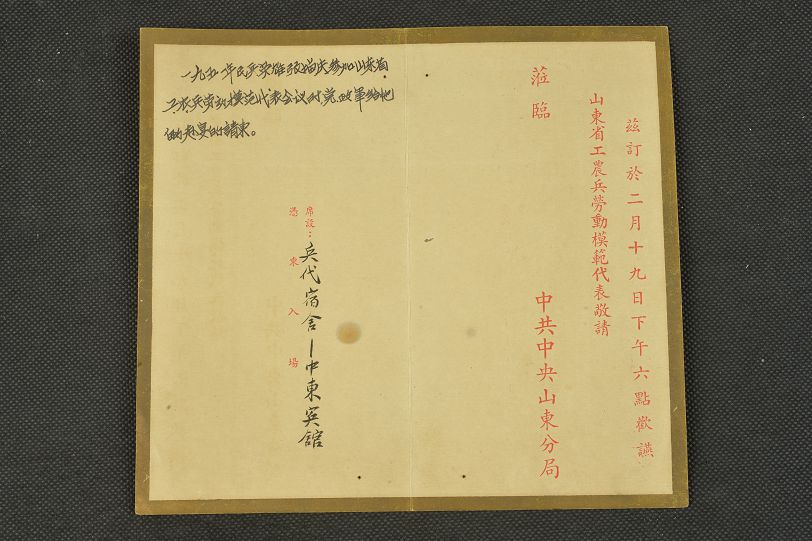 茲訂於二月十九日下午六點歡讌
山東省工農兵勞動模範代表敬請
蒞臨
中共中央山東分局
席設：兵代宿舍—中東宾舘
憑柬入場
一九五一年民兵英雄張福庆参加山东省
工农兵劳动模范代表会议时党政軍给他
的赴宴的請柬。